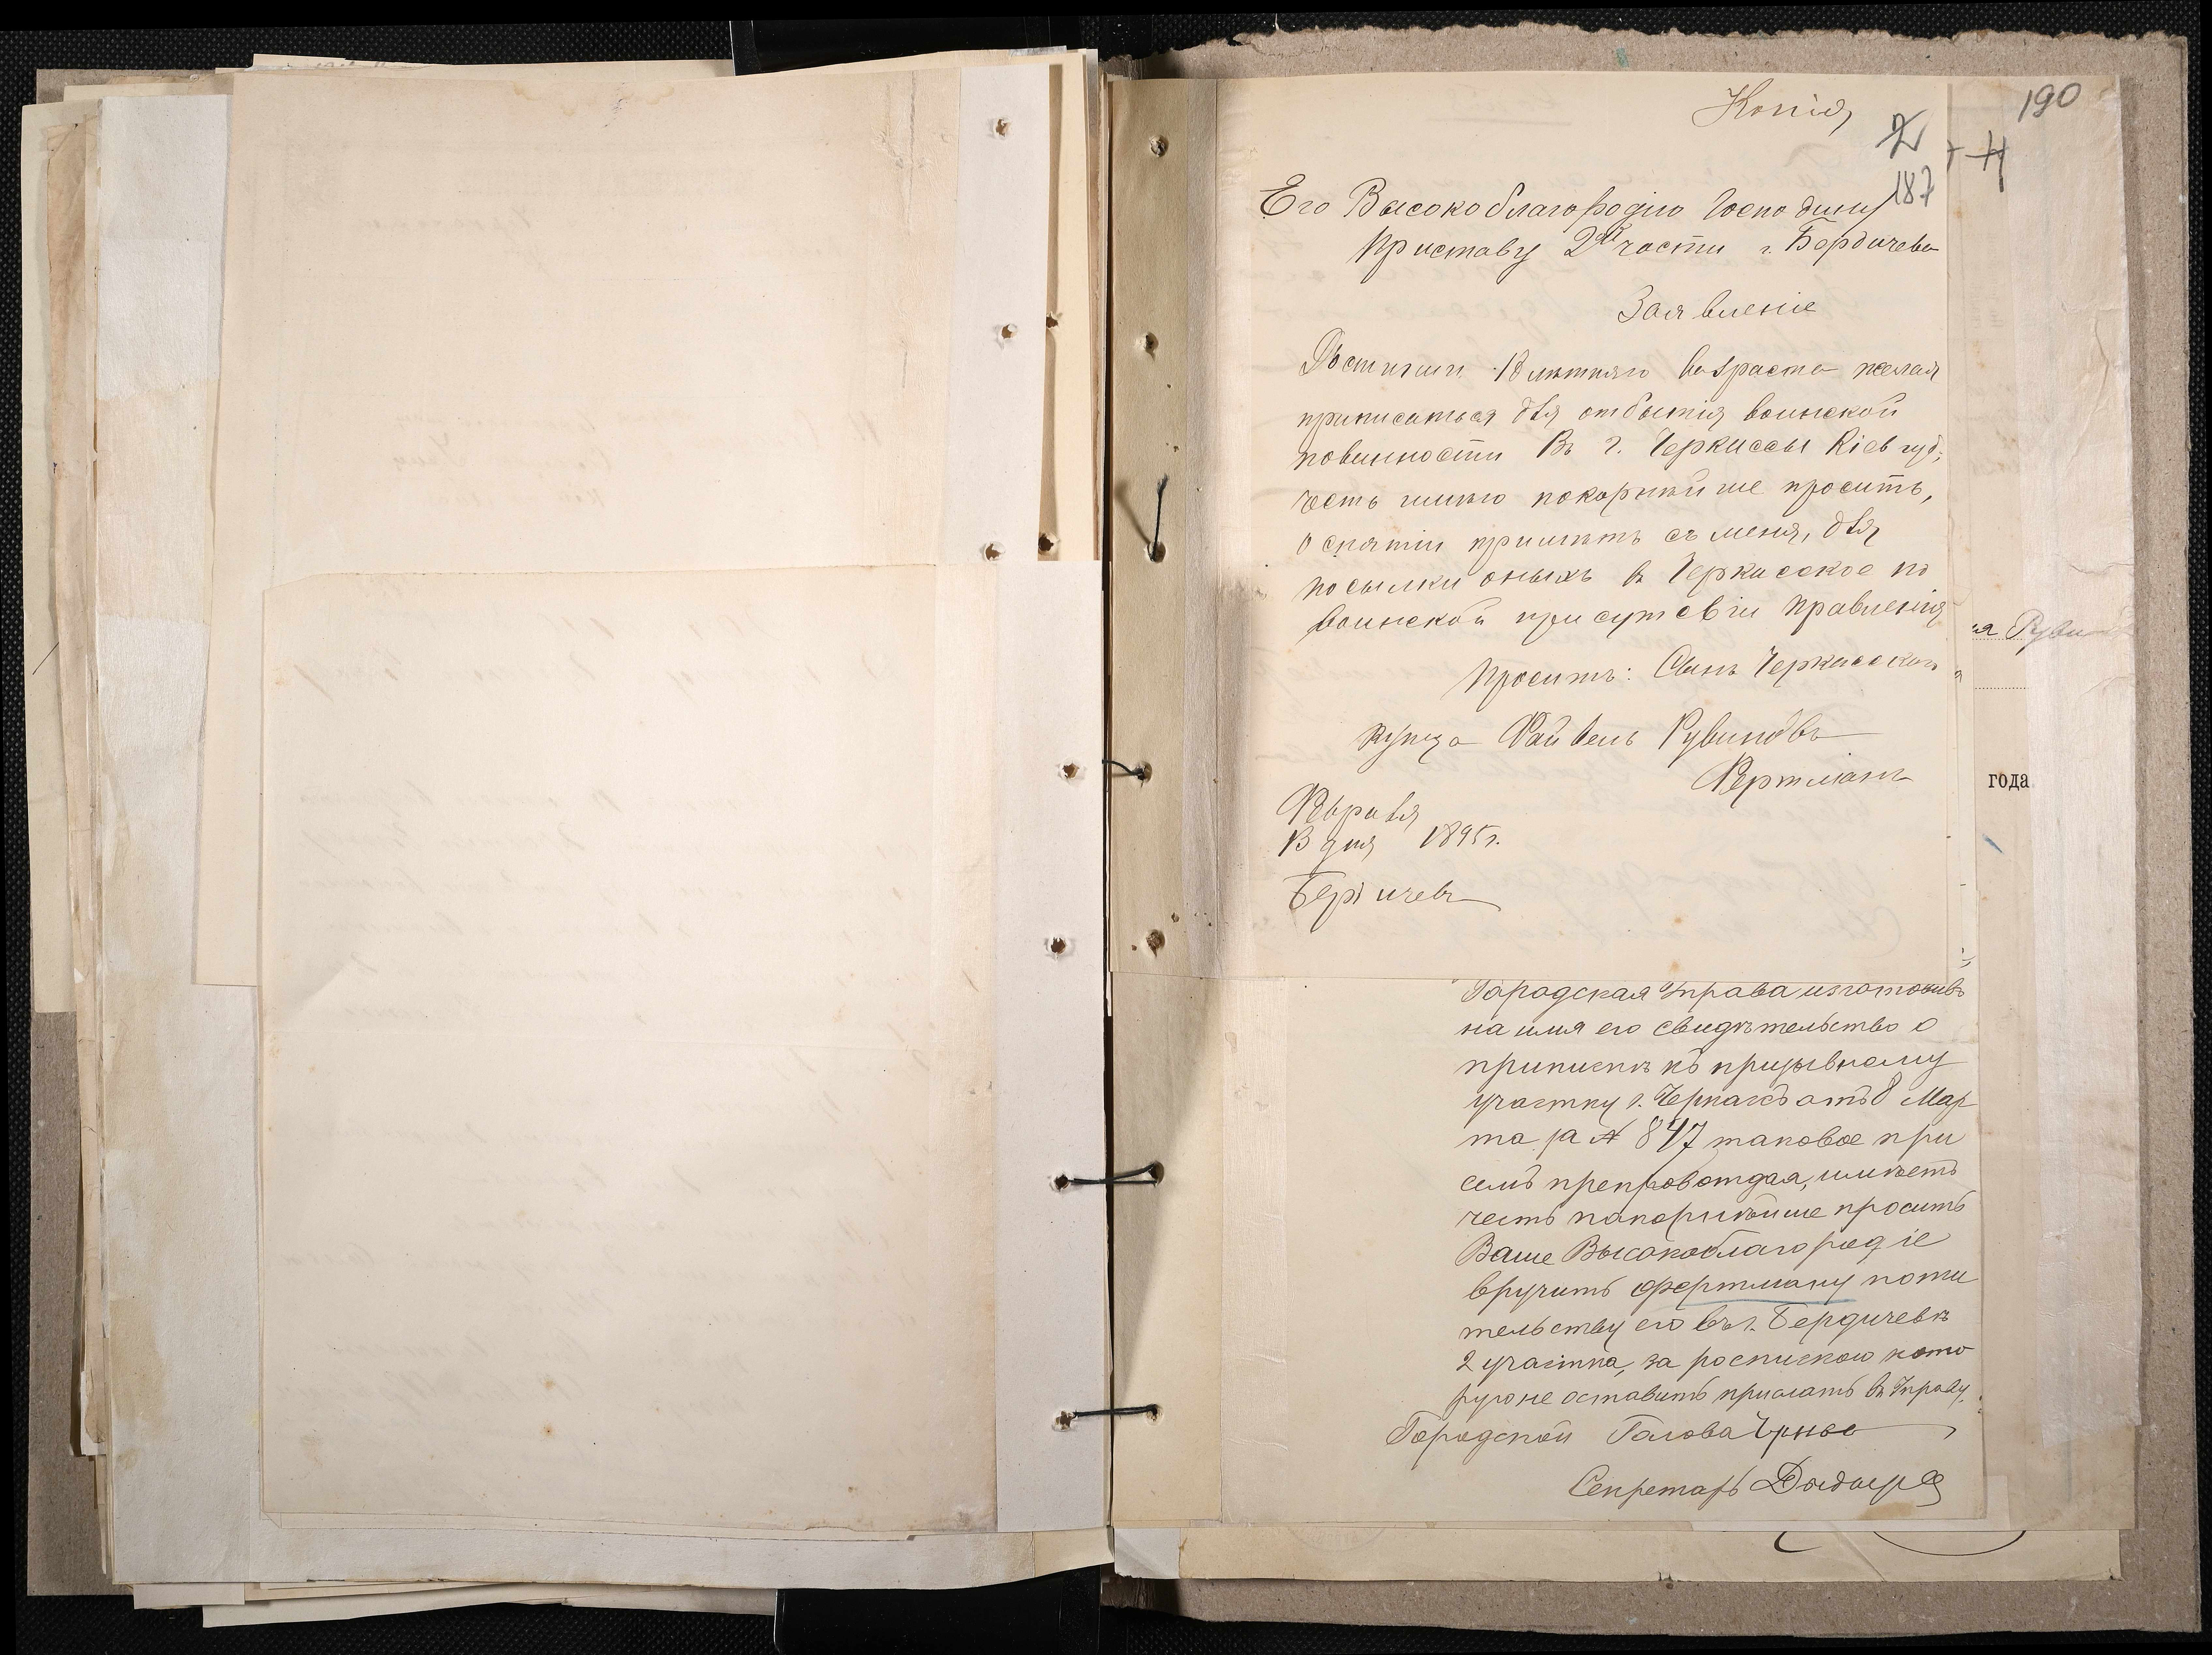 190
Копія
2
+4
187
Его Высокоблагородію Господину
Приставу 2й части г. Бердичева
Заявленіе
Достигши 18 лѣтняго возраста желая
приписаться для отбытія воинской
повинности Въ г. Черкассы Кіев губ.
честь имѣю покорнѣйше просить,
о снятіи примѣтъ съ меня, для
посылки оныхъ въ Черкасское по
воинской присутсвіи правленія
Проситъ: Сынъ Черкасскаго
Купца Файвель Рувиновъ
Фертманъ
Февраля
13 дня 1895г.
Бердичевъ
ая Руви
года
Городская Управа изготовивъ
на имя его свидѣтельство о
припискѣ къ призывному
участку г. Черкасъ отъ 8 Мар
та за № 847 таковое при
семъ препровождая, имѣетъ
честь покорнѣйше просить
Ваше Высокоблагородіе
вручить Фертману по жи
тельству его въ г. Бердичевѣ
2 участка, за роспискою кото
рую не оставить прислать въ Управу.
Городской Голова
Секретарь